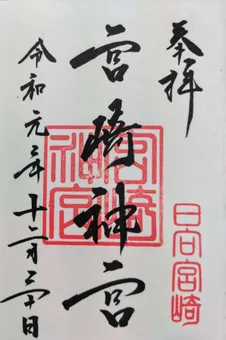 奉拝
日向宮崎
宮崎神宮
宮崎神宮
令和元年十二月三十日